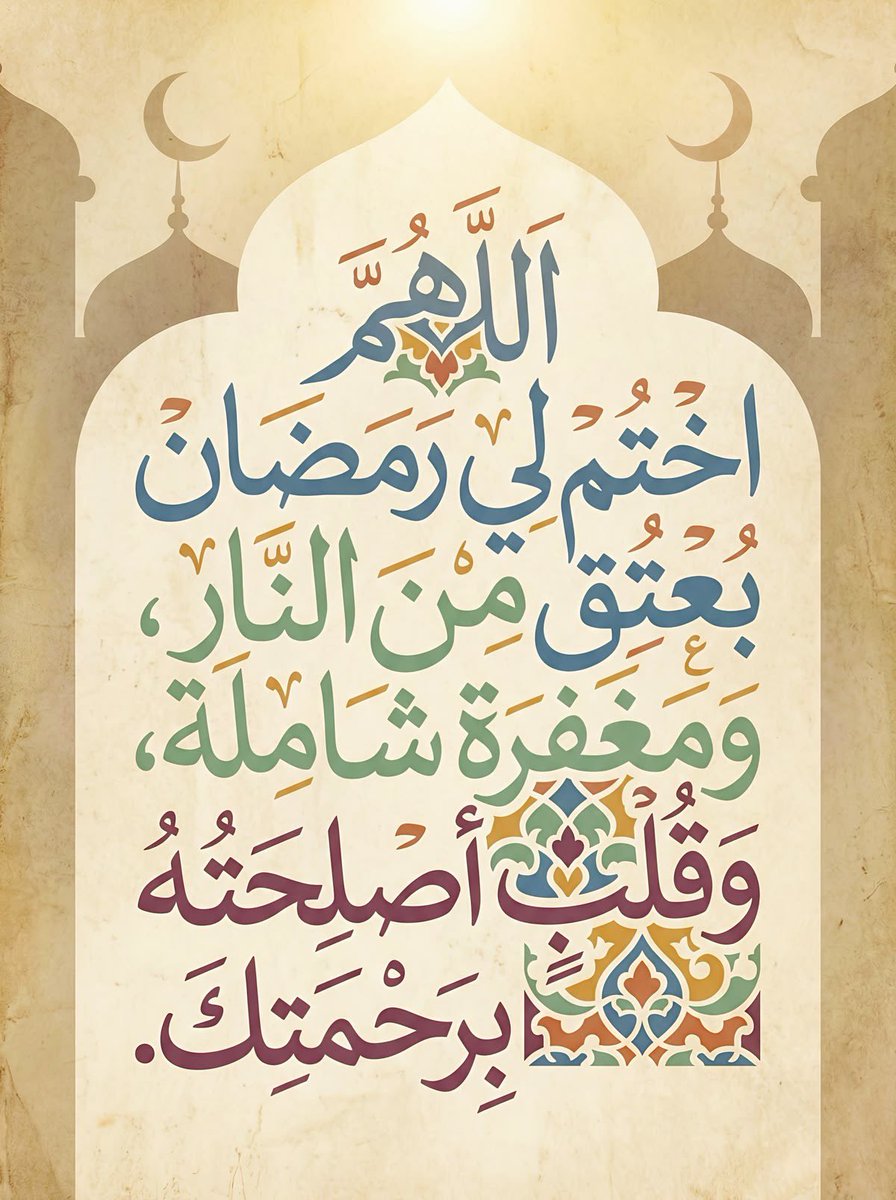 اَللَّهُمَّ
اخْتُمْ لِي رَمَضَانْ
بُعْتِقُ مِنَ النَّار،
وَمَغَفِرَة شَامِلَة،
وَقُلْبٍ أصْلِحَتُهُ
بِرَحْمَتِكَ.